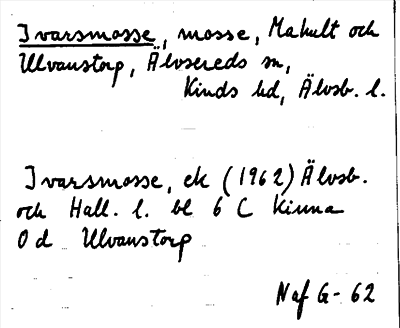 Ivarsmosse, mosse, Mahult och
Ulvanstorp, Älvsereds sn,
Kinds hd, Älvsb. l.
Ivarsmosse, ek (1962) Älvsb.
och Hall. l. bl 6 C Kinna
0 d Ulvanstorp
Naf G- 62